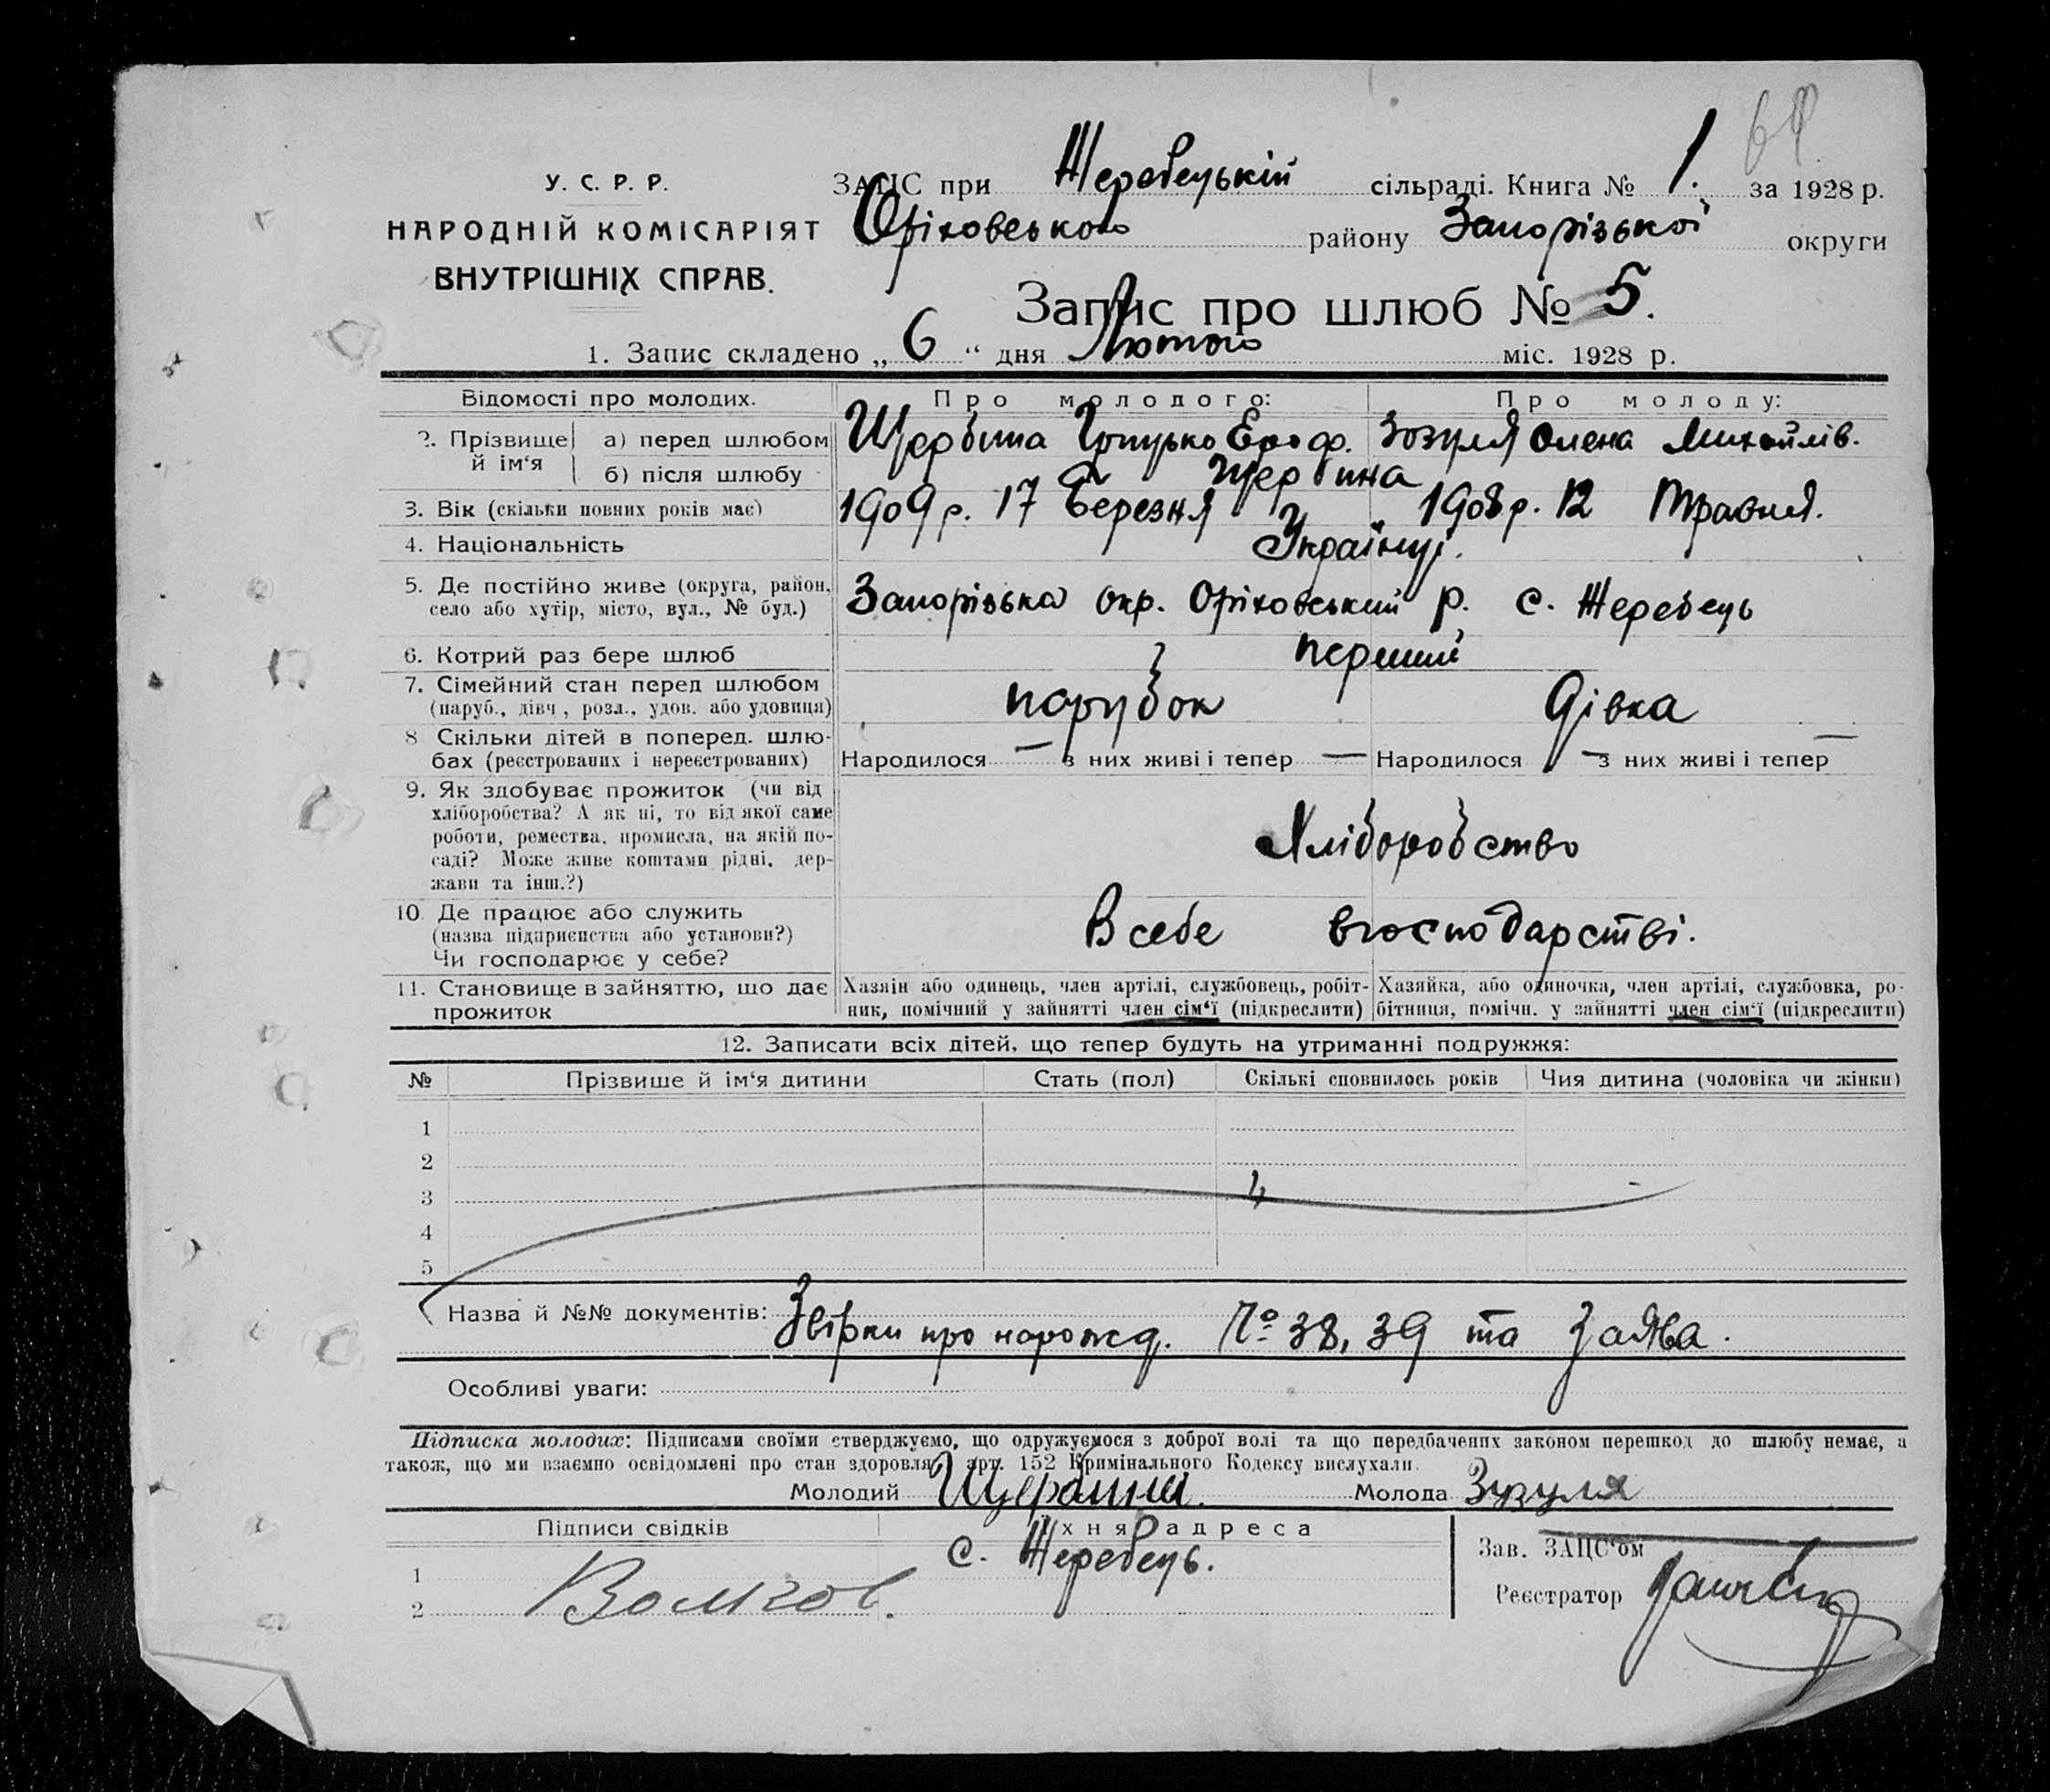 У. С. Р. Р.
НАРОДНІЙ КОМІСАРІЯТ
ВНУТРІШНІХ СПРАВ.
ЗАГС при Жеребецькій сільраді. Книга № 1. за 1928 р.
Оріховського району Запорізької округи
Запис про шлюб № 5.
1. Запис складено „ 6 “ дня Лютого міс. 1928 р.
Відомості про молодих. Про молодого: Про молоду:
2. Прізвище й ім‘я а) перед шлюбом Щербина Грицько Ероф. Зозуля Олена Михайлів.
б) після шлюбу Щербина
3. Вік (скільки повних років має) 1909 р. 17 Березня 1908 р. 12 Травня.
4. Національність Українці.
5. Де постійно живе (округа, район, село або хутір, місто, вул., № буд.) Запорізька окр. Оріховський р. с. Жеребець
6. Котрий раз бере шлюб перший
7. Сімейний стан перед шлюбом (паруб., дівч., розл., удов. або удовиця) парубок дівка
8. Скільки дітей в поперед. шлюбах (реєстрованих і нереєстрованих) Народилося — з них живі і тепер — Народилося — з них живі і тепер —
9. Як здобуває прожиток (чи від
хліборобства? А як ні, то від якої саме
роботи, ремества, промисла, на якій по-
саді? Може живе коштами рідні, дер-
жави та інш.?)
Хліборобство
10. Де працює або служить
(назва підприєнства або установи?)
Чи господарює у себе?
В себе вгосподарстві.
11. Становище в зайняттю, що дає прожиток
Хазяін або одинець, член артілі, службовець, робіт-
ник, помічний у зайнятті член сім‘ї (підкреслити)
Хазяйка, або одиночка, член артілі, службовка, ро-
бітниця, помічн. у зайнятті член сім‘ї (підкреслити)
12. Записати всіх дітей, що тепер будуть на утриманні подружжя:
№ Прізвише й ім‘я дитини Стать (пол) Скількі сповнилось років Чия дитина (чоловіка чи жінки)
1
2
3
4
5
Назва й №№ документів: Звірки про нарожд. № 38, 39 та Заява.
Особливі уваги:
Підписка молодих: Підписами своїми стверджуємо, що одружуємося з доброї волі та що передбачених законом перешкод до шлюбу немає, а
також, що ми взаємно освідомлені про стан здоровля, арт. 152 Кримінального Кодексу вислухали.
Молодий Щербина. Молода Зузуля
Підписи свідків Їхня адреса
1 с. Жеребець.
2 Волков.
Зав. ЗАЦС‘ом
Реєстратор